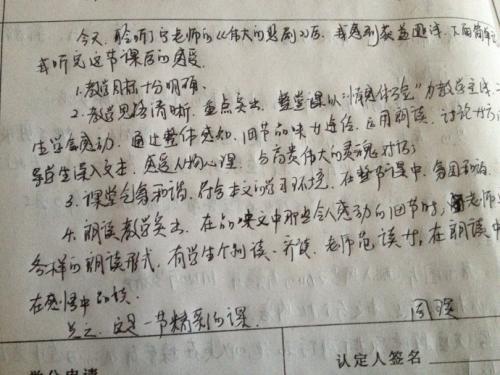 今天,聆听了宁老师的《伟大的悲剧》后,我感到获益匪浅,下面简单
我听完这节课后的感受
1.教学目标十分明确。
2.教学思路清晰,重点突出,整堂课以“情感体验”为教学主线
生学会感动,通过整体感知、细节品味 ,运用朗读、讨论
学生深入文本,感受人物心理,与高贵伟大的灵魂对话;
3.课堂气氛和谐,符合本文的学习环境,在整节课中,氛围和谐
4.朗读教学突出,在品味文中那些令人感动的细节时,老师
各样的朗读形式,有学生个别读、齐读、老师范读等,在朗读中
在感悟中品读。
总之,这是一节精彩的课。
认定人签名
学分申请